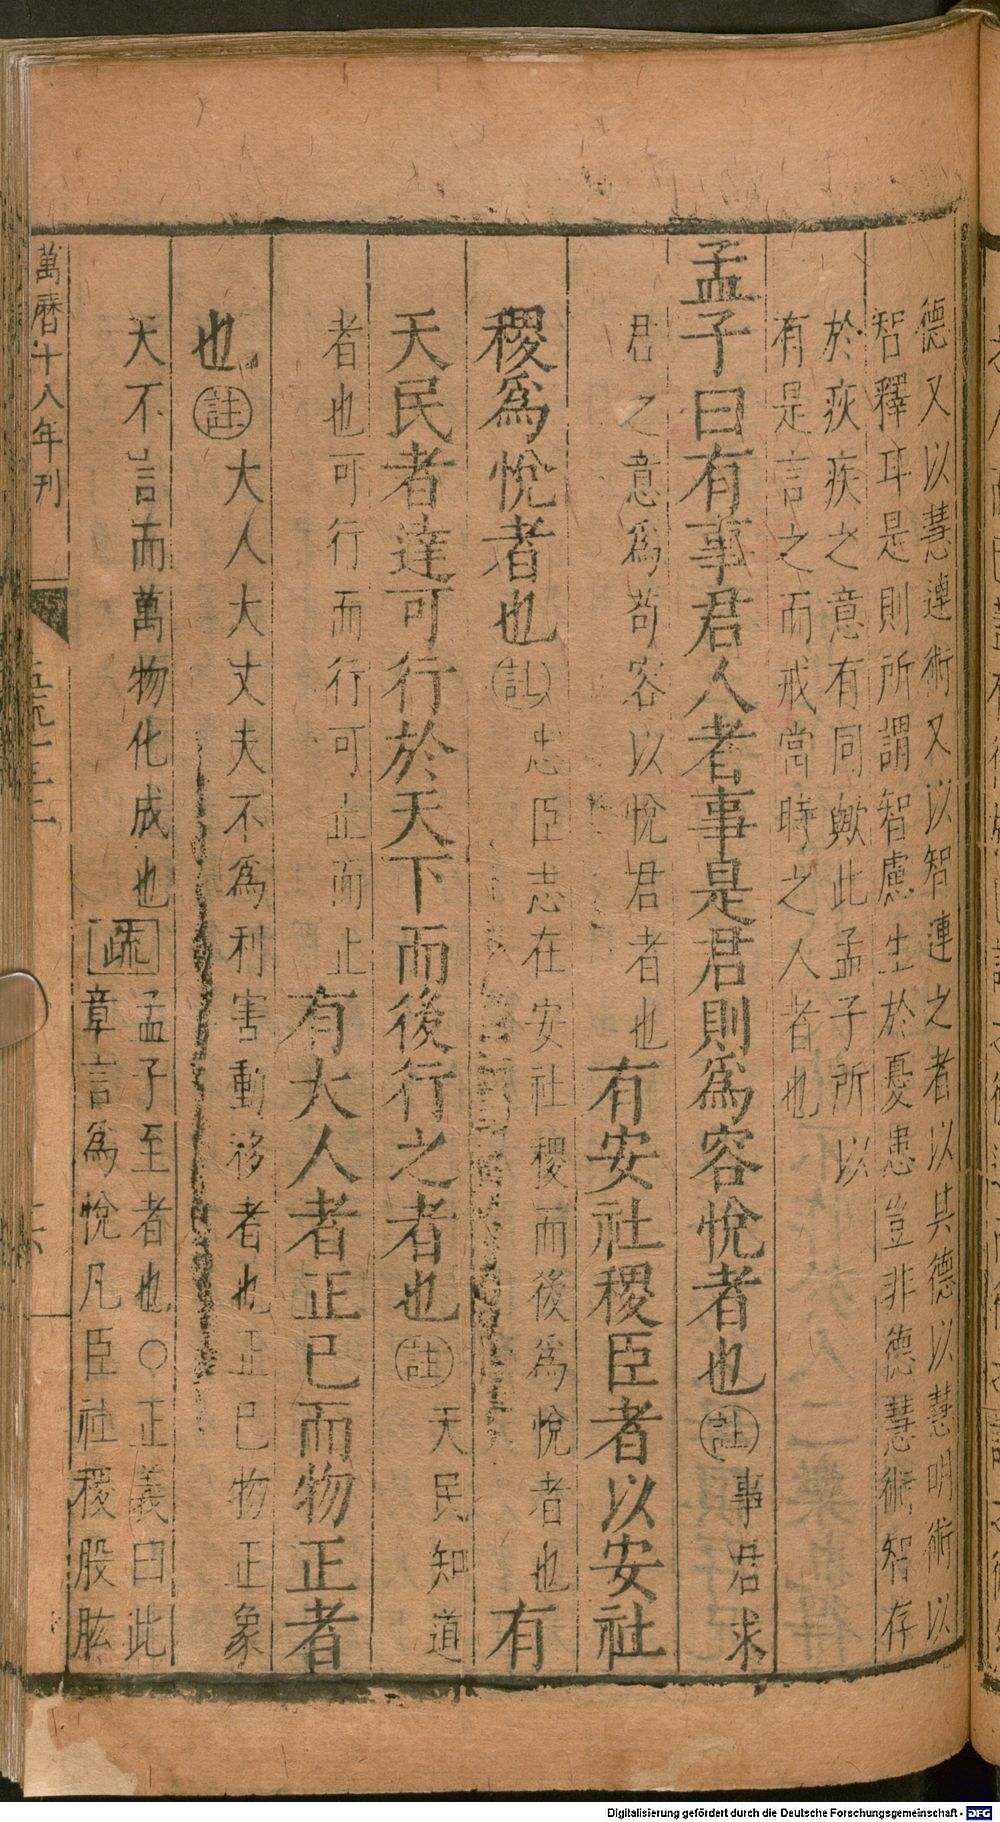 德又以慧連術又以智連之者以其德以慧明術以
智釋耳是則所謂智慮生於憂患豈非德慧術智存
於疢疾之意有同歟此孟子所以
有是言之而戒當時之人者也
孟子曰有事君人者事是君則爲容悅者也註事君求
君之意爲苟容以悅君者也有安社稷臣者以安社
稷爲悅者也註忠臣志在安社稷而後爲悅者也有
天民者達可行於天下而後行之者也註天民知道
者也可行而行可止而止有大人者正已而物正者
也註大人大丈夫不爲利害動移者也正已物正象
天不言而萬物化成也疏孟子至者也○正義曰此
章言爲悅凡臣社稷股肱
萬曆十八年刊
Digitalisierung gefördert durch die Deutsche Forschungsgemeinschaft - DFG